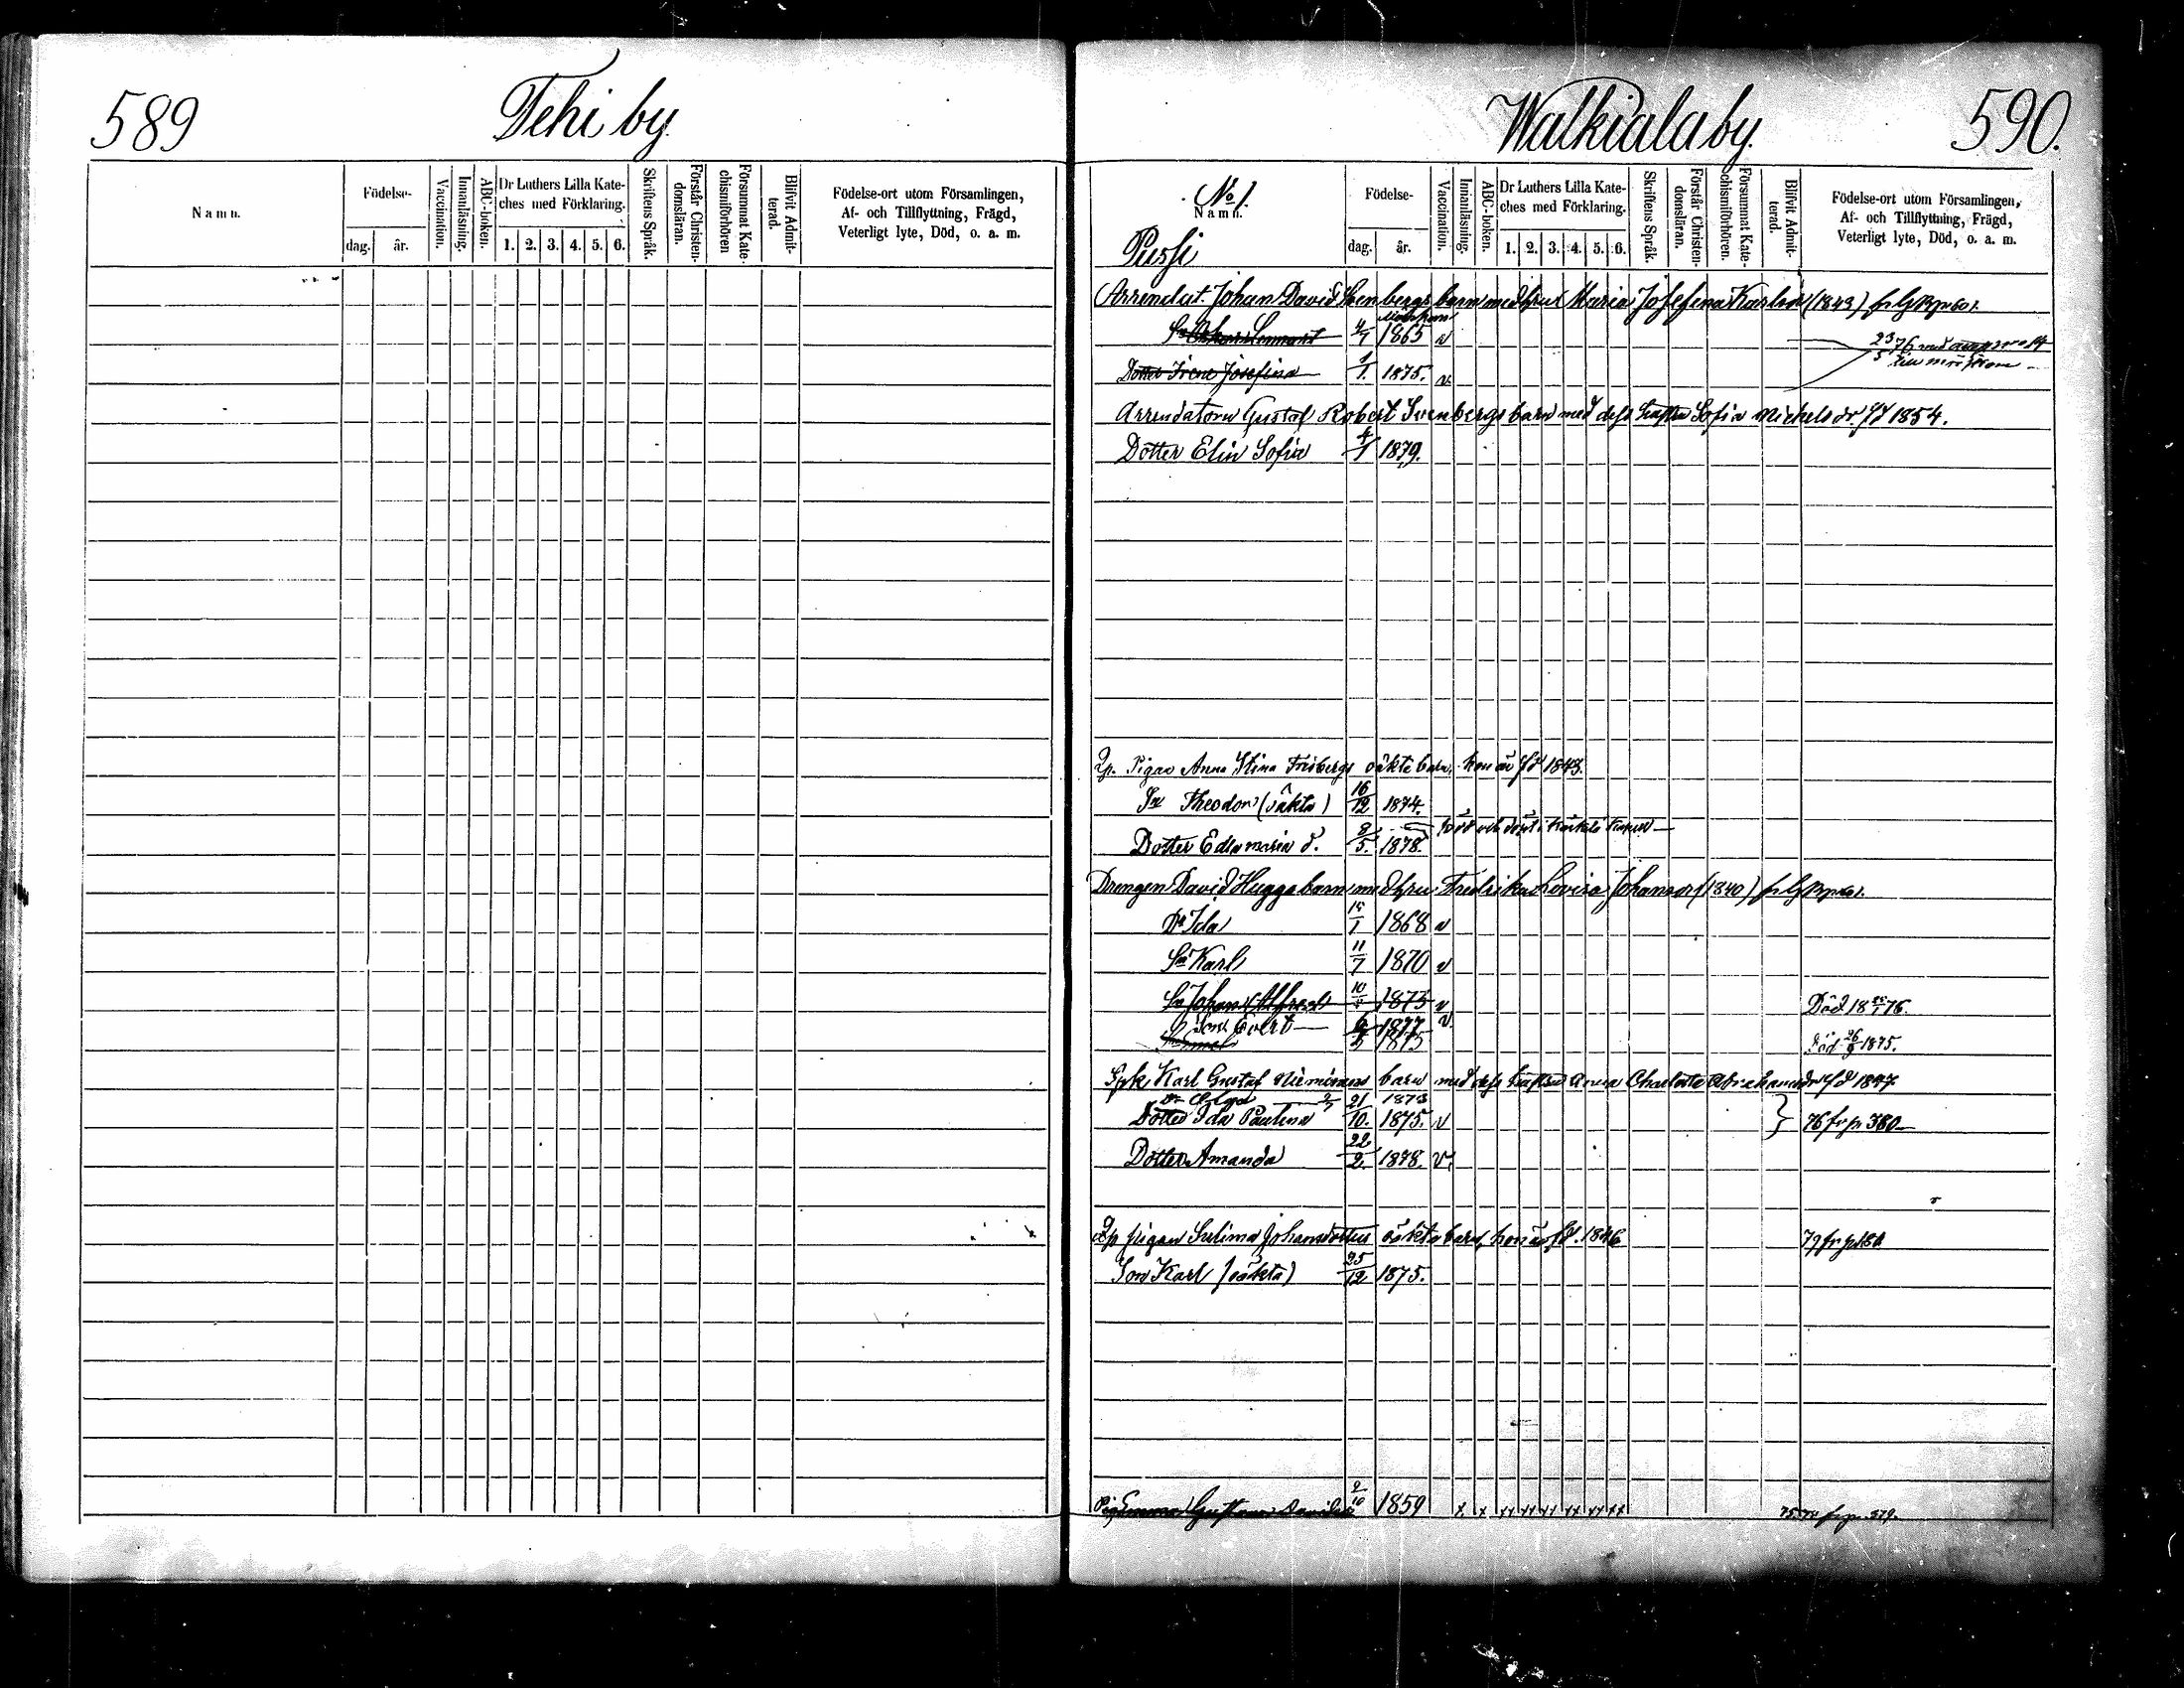 589
Tehi by
Namn.
Födelse-
dag. år.
Vaccination.
Innanläsning.
ABC-boken.
Dr Luthers Lilla Kate-
ches med Förklaring.
1. 2. 3. 4. 5. 6.
Skriftens Språk.
Förstår Christen-
domsläran.
Försummat Kate-
chismiförhören
Blifvit Admit-
terad.
Födelse-ort utom Församlingen,
Af- och Tillflyttning, Frägd,
Veterligt lyte, Död, o. a. m.
Walkiala by.
590.
No 1.
Namn.
Pussi
Födelse-
dag. år.
Vaccination.
Innanläsning.
ABC-boken.
Dr Luthers Lilla Kate-
ches med Förklaring.
1. 2. 3. 4. 5. 6.
Skriftens Språk.
Förstår Christen-
domsläran.
Försummat Kate-
chismiförhören.
Blifvit Admit-
terad.
Födelse-ort utom Församlingen,
Af- och Tillflyttning, Frägd,
Veterligt lyte, Död, o. a. m.
Arrendat. Johan David Svenbergs barn med hru Maria Josefina Karlsdr (1843)
Sn Lennart 4/7 1865 v 23/5 76 med
Dotter Irene Josefina 1/1. 1875. v.
Arrendatorn Gustaf Robert Svenbergs barn med dess hustru Sofia Michelsdr. fd 1854.
Dotter Elin Sofia 4/1 1879.
Pigan Anna Stina Frisbergs oäkta barn, hon är fd 1843.
Sn Theodor (oäkta) 16/12 1874.
Dotter Edla Maria d. 8/5. 1878. född och döpt i
Drengen David Huggs barn med hru Fredrika Lovisa Johansdr (1840)
Dr Ida 15/1 1868 v
Sn Karl 11/7 1870 v
Sn Johan Alfred 10/ 1873 v Död 18 76.
Son Evert 6/ 1877 v.
Sn Emil 1875 Död 26/9 1875.
Karl Gustaf Nieminens barn med dess hustru Anna Charlotta Abrahamsdr fd 1847
Dr Olga 2/7 1873
Dotter Ida Paulina 21/10. 1875. v } 76 fr p. 380
Dotter Amanda 22/2. 1878. v.
pigan Selima Johansdotters oäkta barn, hon är fd. 1846
Son Karl (oäkta) 25/12 1875.
Pig Emma Gustava Davidsdr 2/10 1859 x x xx xx xx xx xx xx fr p. 579.